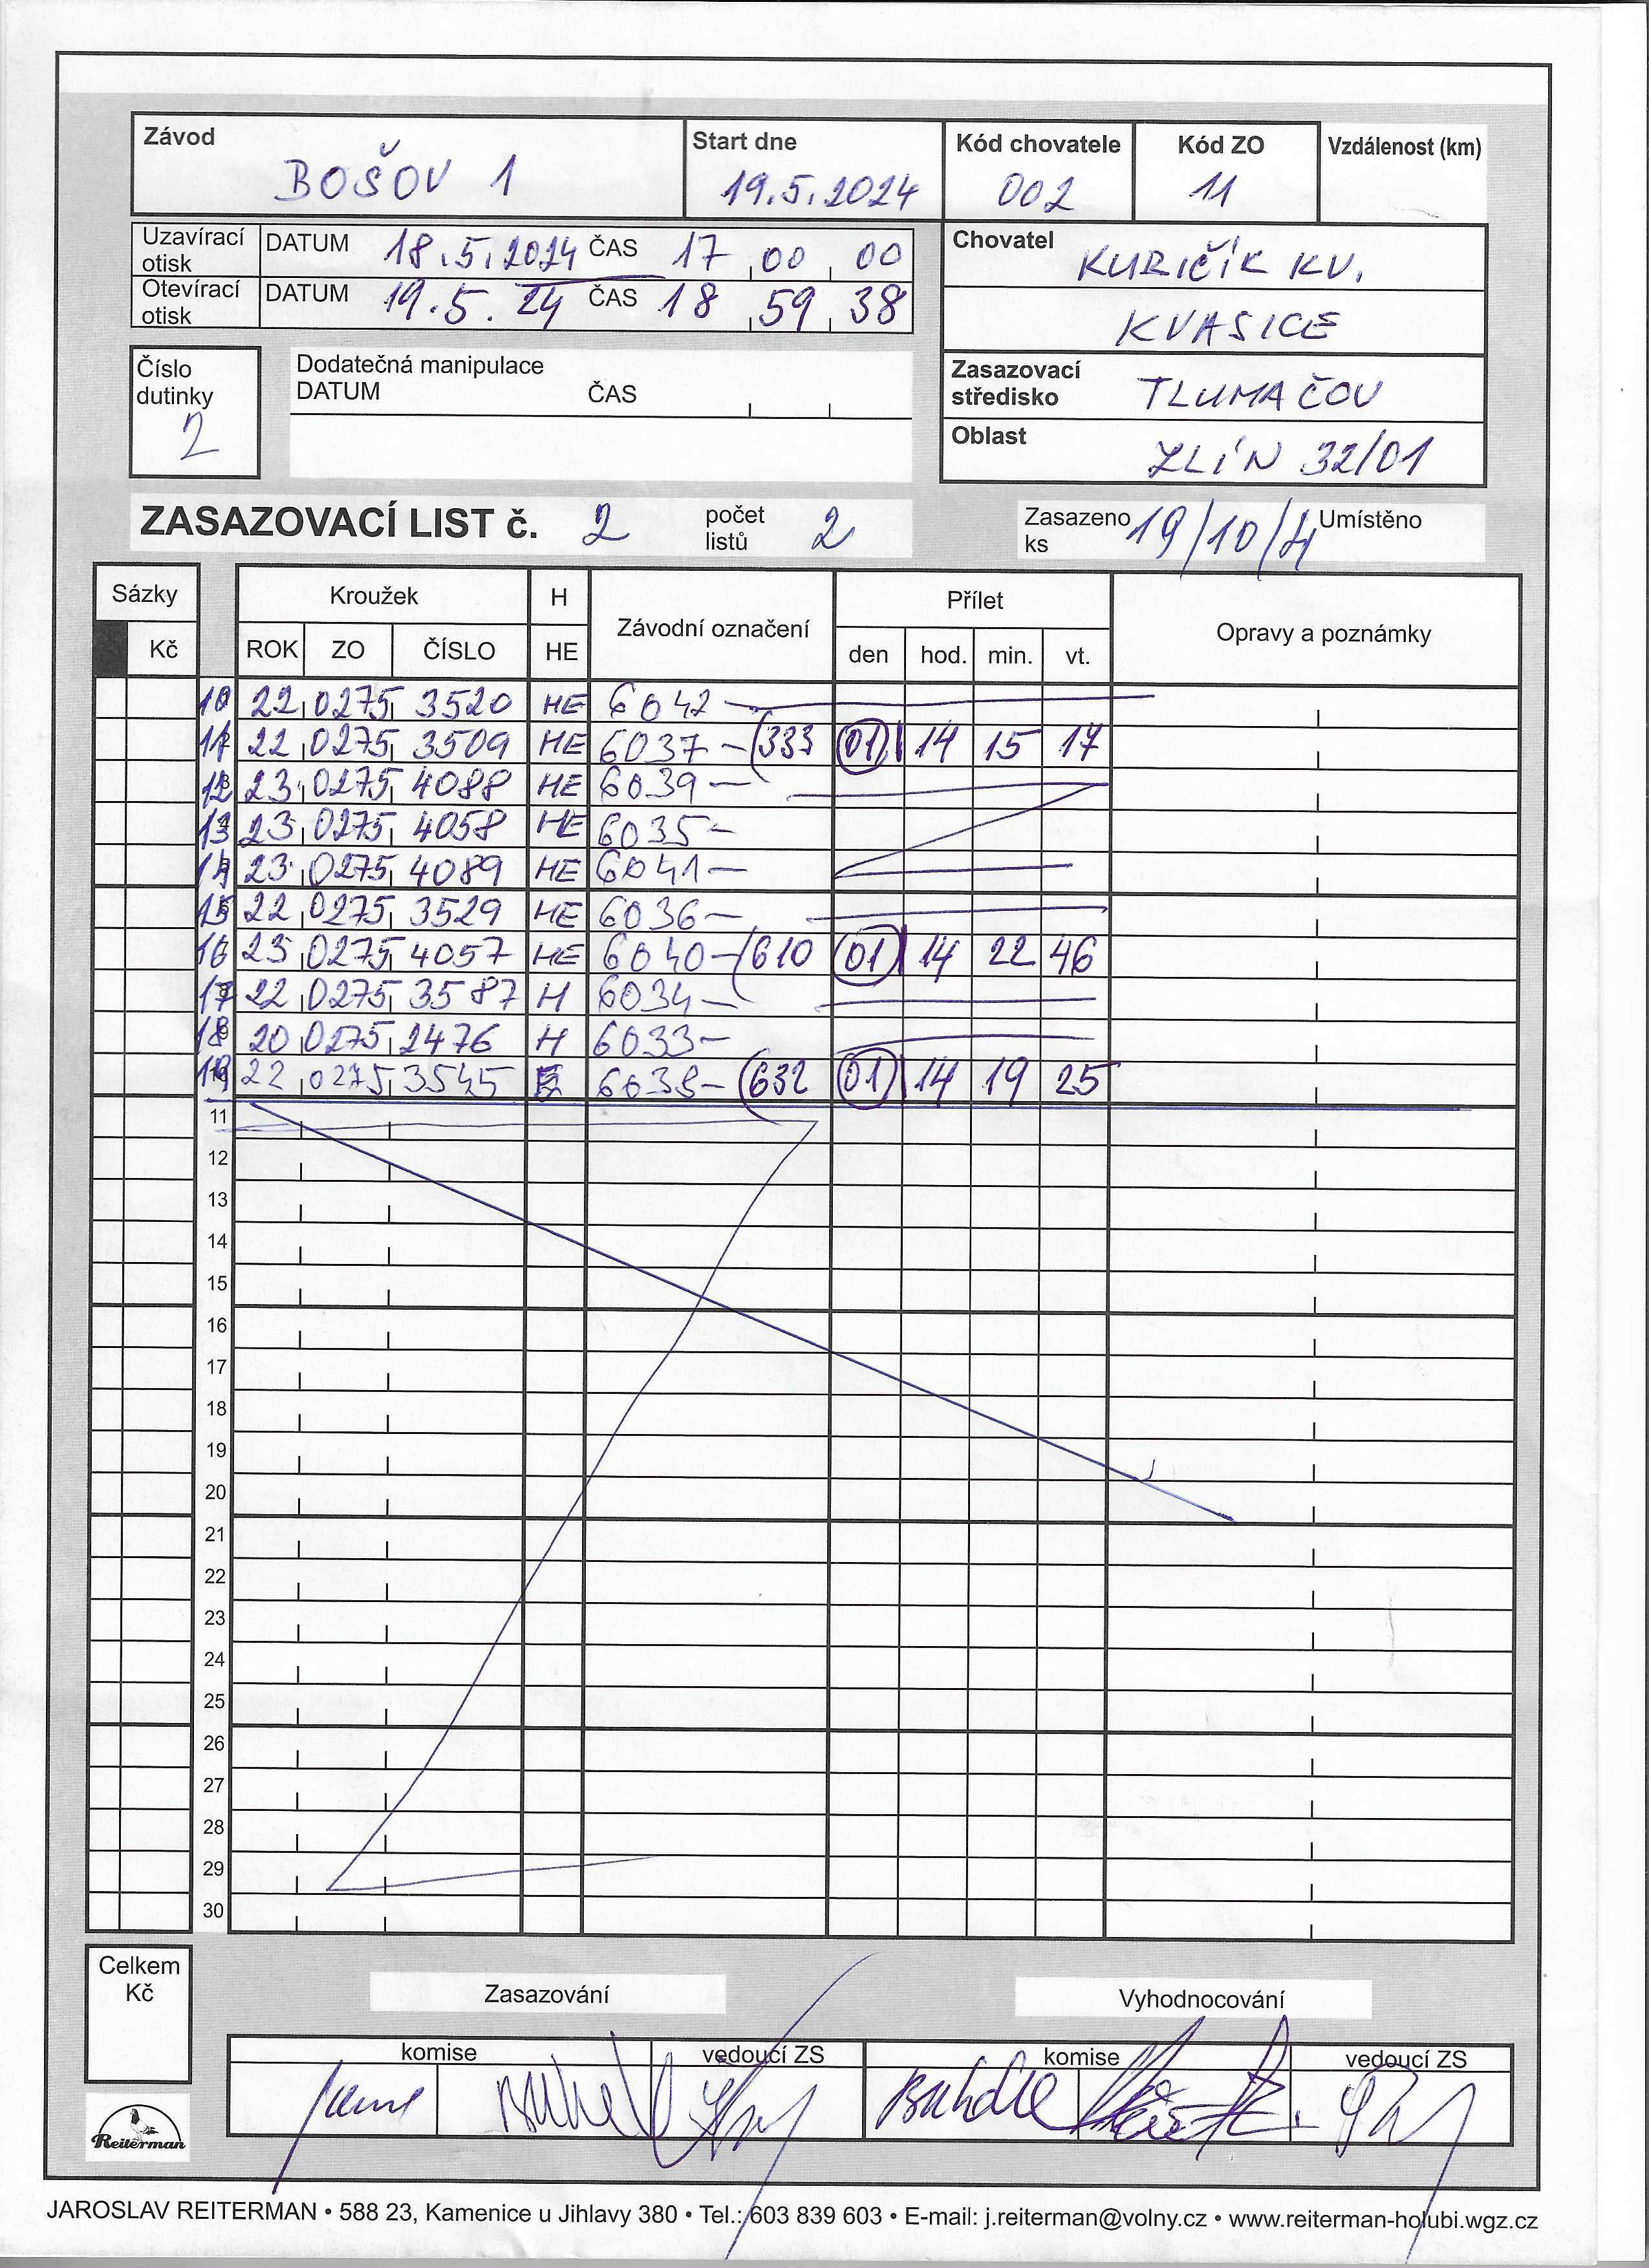 Závod BOŠOV 1 Start dne 19.5.2024 Kód chovatele 002 Kód ZO 11 Vzdálenost (km)
Uzavírací otisk DATUM 18.5.2024 ČAS 17 00 00
Otevírací otisk DATUM 19.5.24 ČAS 18 59 38
Chovatel KURIČÍK KV.
KVASICE
Zasazovací středisko TLUMAČOV
Oblast ZLÍN 32/01
Číslo dutinky 2
Dodatečná manipulace
DATUM ČAS
ZASAZOVACÍ LIST č. 2 počet listů 2 Zasazeno ks 19/10/4 Umístěno
Sázky Kroužek H Závodní označení Přílet Opravy a poznámky
Kč ROK ZO ČÍSLO HE den hod. min. vt.
10 22 0275 3520 HE 6042 —
11 22 0275 3509 HE 6037 – (333 01 14 15 17
12 23 0275 4088 HE 6039 —
13 23 0275 4058 HE 6035 –
14 23 0275 4089 HE 6041 —
15 22 0275 3529 HE 6036 —
16 23 0275 4057 HE 6040 – (610 01 14 22 46
17 22 0275 3587 H 6034 —
18 20 0275 2476 H 6033 –
19 22 0275 3545 6038 – (632 01 14 19 25
11
12
13
14
15
16
17
18
19
20
21
22
23
24
25
26
27
28
29
30
Celkem Kč
Zasazování Vyhodnocování
komise vedoucí ZS komise vedoucí ZS
Reiterman
JAROSLAV REITERMAN • 588 23, Kamenice u Jihlavy 380 • Tel.: 603 839 603 • E-mail: j.reiterman@volny.cz • www.reiterman-holubi.wgz.cz